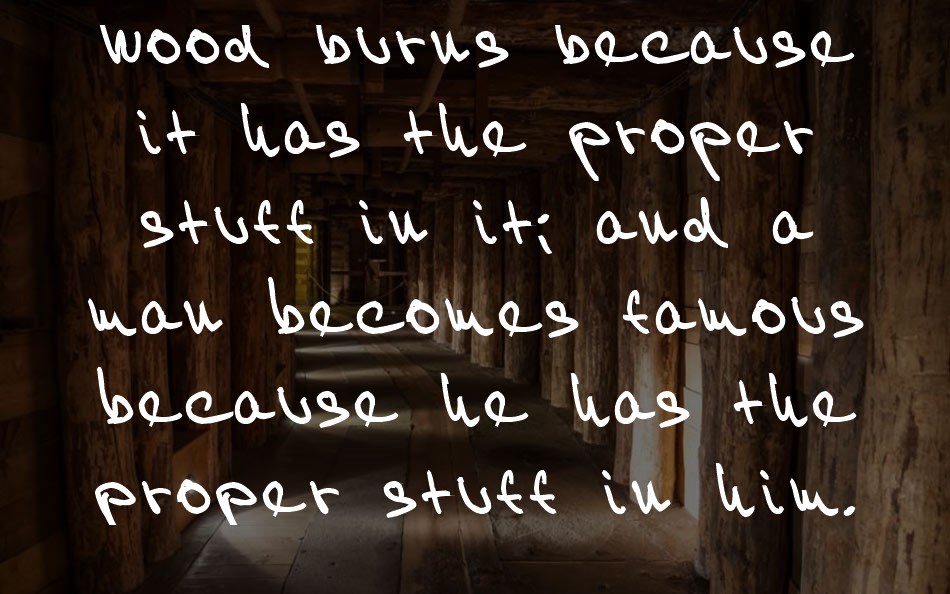 wood burns because
it has the proper
stuff in it; and a
man becomes famous
because he has the
proper stuff in him.